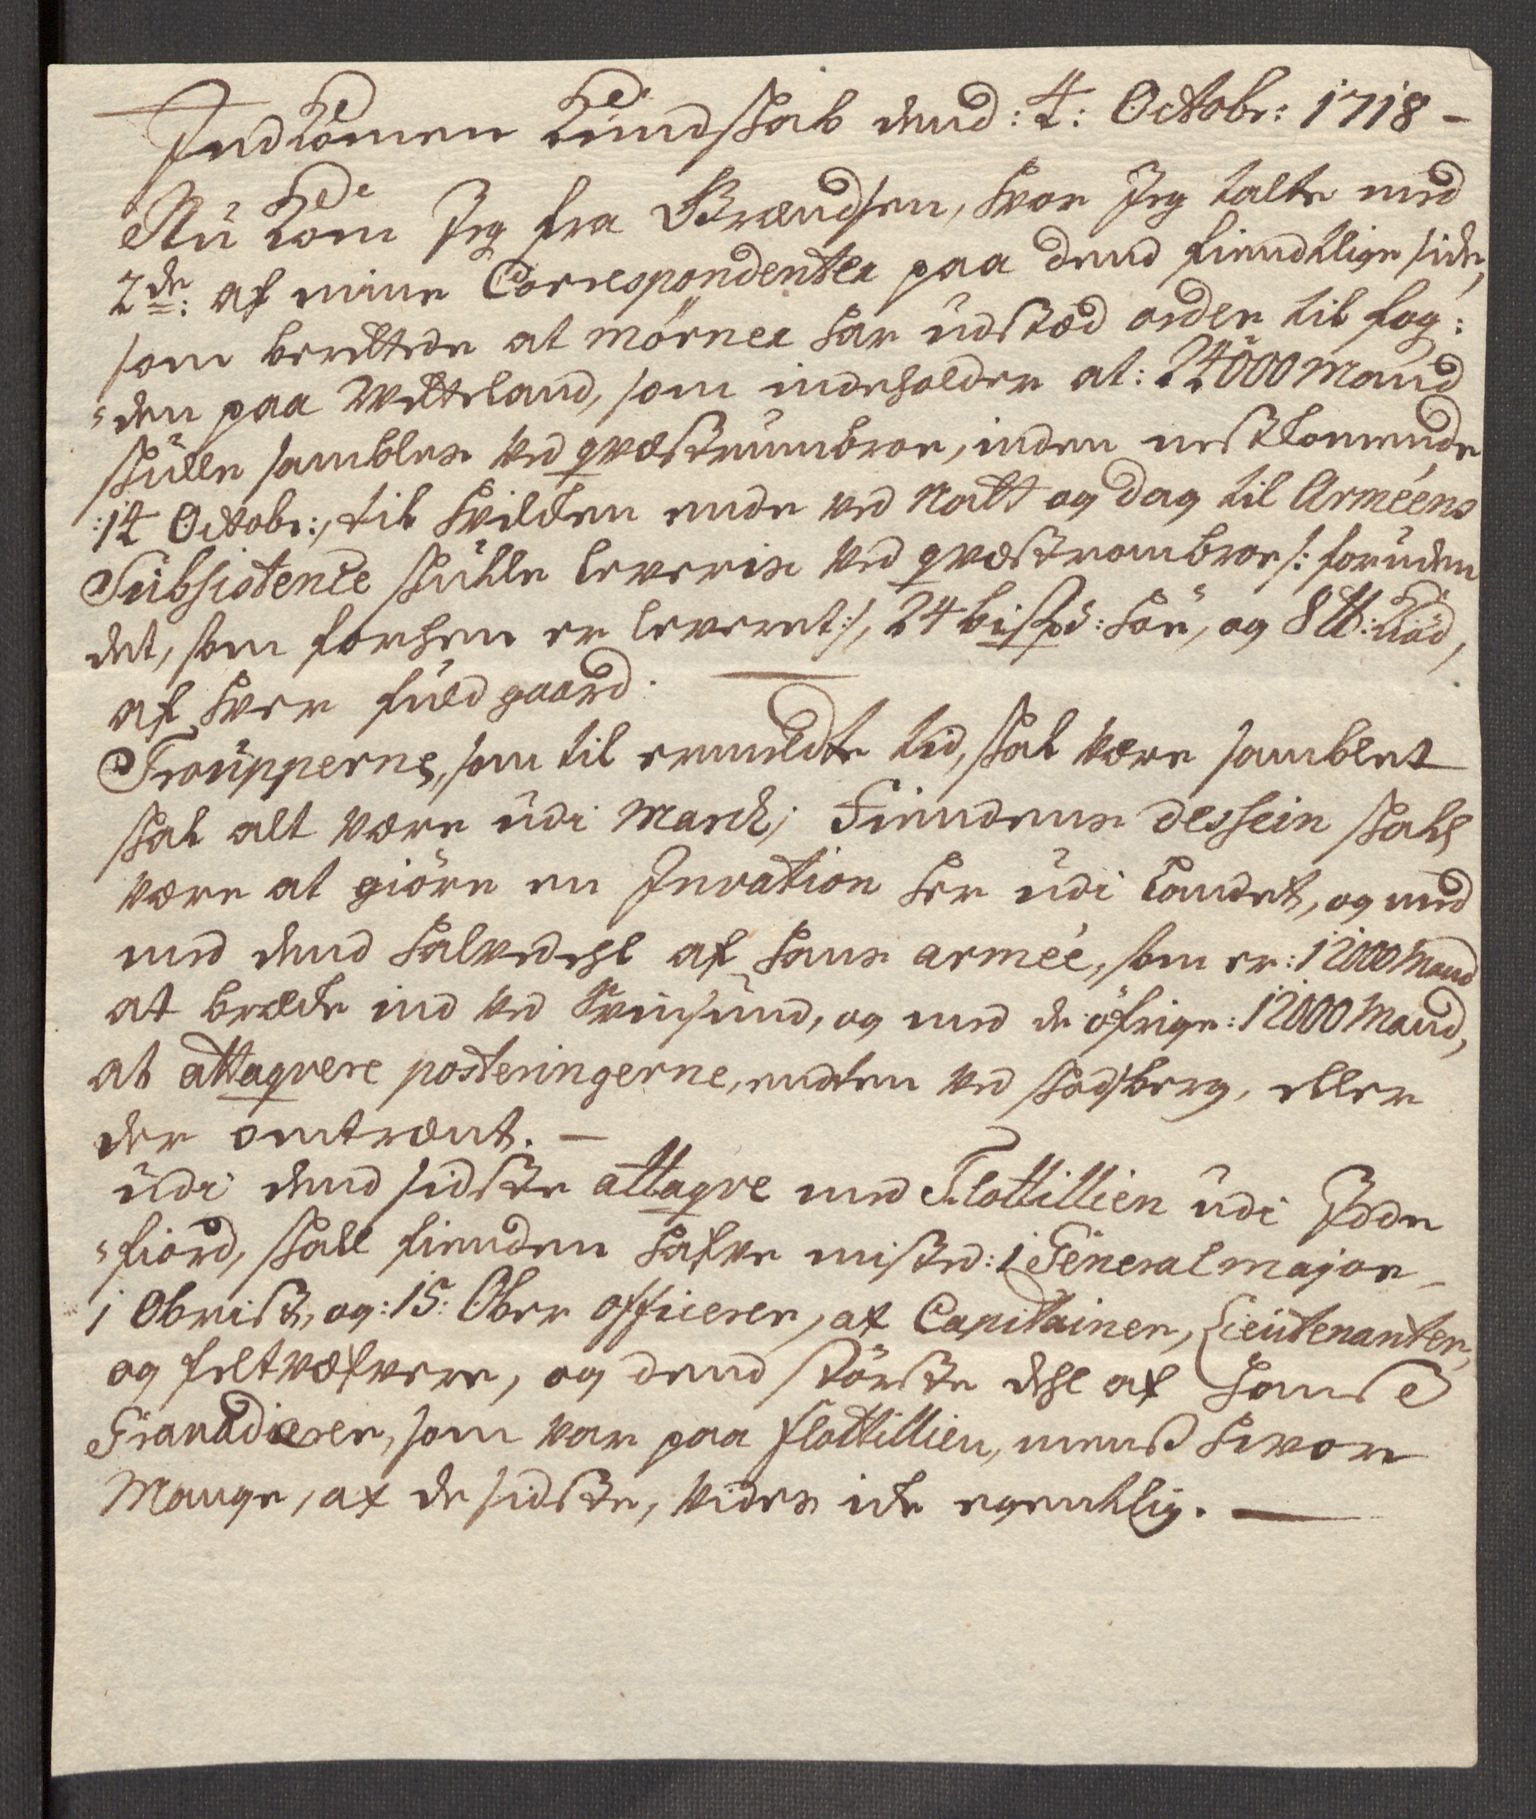 Indkomen Kundskab dend: 4: Octobr: 1718 -
Nu kom Jeg fra Grændsen, hvor Jeg talte med
2de: af mine Correspondenter paa dend fiendtlige side,
som berettede at Mörner har udstæd order til fog:
=den paa Wetteland, som indeholder at: 24000 Mand
skulle sambles ved qvæstrumbroe, inden nestkomende
:14 Octobr:, til hvilken ende ved Natt og dag til Armeens
Subsistence skulle leveris ved qvæstrombroe /: foruden
det, som forhen er leveret:/, 24 bispd: höe, og 8 ℔: kiöd,
af hver fuld gaard.
Troupperne, som til ermeldte tid, skal være samblet
skal alt være udi March; Fiendens dessein skall
være at giöre en Invation her udi Landet, og med
med dend halvedehl af hans armée, som er: 12000 Mand
at brække ind ved Svinsund, og med de öfrige: 12000 Mand,
at attaqvere posteringerne, enten ved skodsberg, eller
der omtrent. —
udi dend sidste attaqve med Flottillien udi Idde
=fiord, skall fienden hafve misted: 1 General major
1 Obrist, og: 15: Ober officerer, af Capitainer, Lieutenanter,
og feltvæfvere, og dend störste dehl af hans
Granadierer, som var paa flottillien, mens hvor
Mange, af de sidste, vides icke egentlig. —